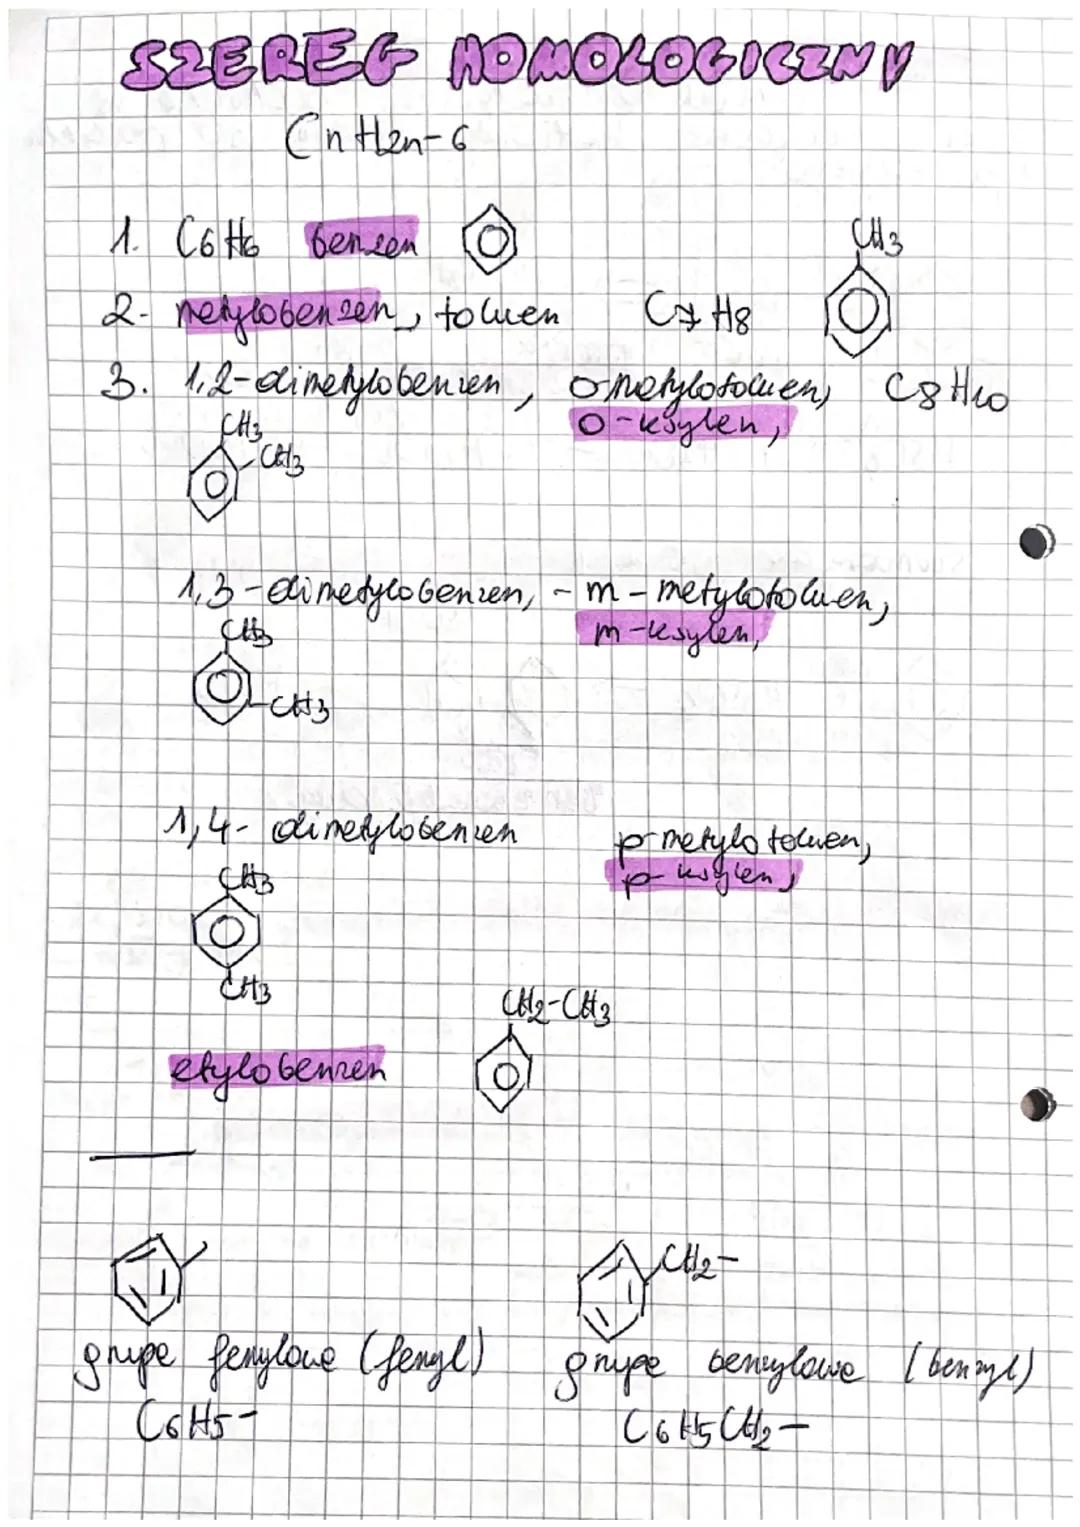 SZEREG HOMOLOGICZNY
CnH2n-6
1. C6H6 benzen
CH3
2. metylobenzen, toluen C7H8
3. 1,2-dimetylobenzen, o-metylotoluen, C8H10
o-ksylen,
CH3
CH3
1,3-dimetylobenzen, - m-metylotoluen,
m-ksylen,
CH3
-CH3
1,4-dimetylobenzen p-metylotoluen,
p-ksylen,
CH3
CH3
CH2-CH3
etylobenzen
CH2-
grupa fenylowa (fenyl) grupa benzylowa (benzyl)
C6H5- C6H5CH2-